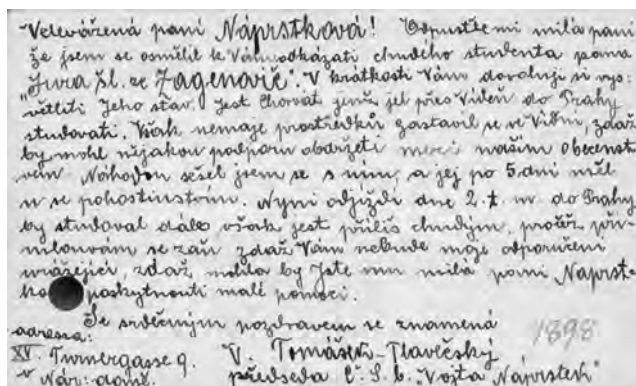 Velevážená paní Náprstková! Odpusťte mi milá paní
že jsem se osmělil k Vám odkázati chudého studenta pana
"Jura šl. ze Zagenovič". V krátkosti Vám dovoluji si vys:
větliti Jeho stav. Jest Chorvat jenž jel přes Vídeň do Prahy
studovati. Však nemaje prostředků zastavil se ve Vídni, zdaž
by mohl nějakou podporu obdržeti mezi naším obecenst
vem Náhodou sešel jsem se s ním, a jej po 5 dní měl
u se pohostinstvím. Nyní odjíždí dne 2. t. m. do Prahy
by studoval dále však jest příliš chudým, pročež při-
mlouvám se zaň zdaž Vám nebude moje odporučení
urážející, zdaž mohla by Jste mu milá paní Naprst-
ko poskytnouti malé pomoci.
Se srdečným pozdravem se znamená
adressa: 1898
XV. Turnergasse 9. V. Tomášek-Hlavečský
v Nár: domě. předseda Č. S. b. "Vojta Náprstek"